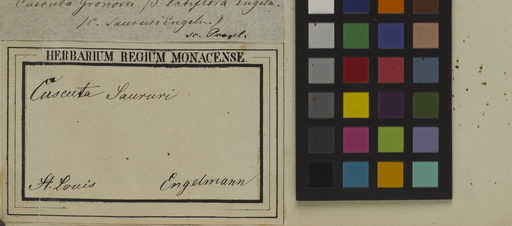 Cuscuta Gronovii β latiflora Engelm.
(C. Saururi Engelm.)
sc. Progel.
HERBARIUM REGIUM MONACENSE.
Cuscuta Saururi
St. Louis Engelmann